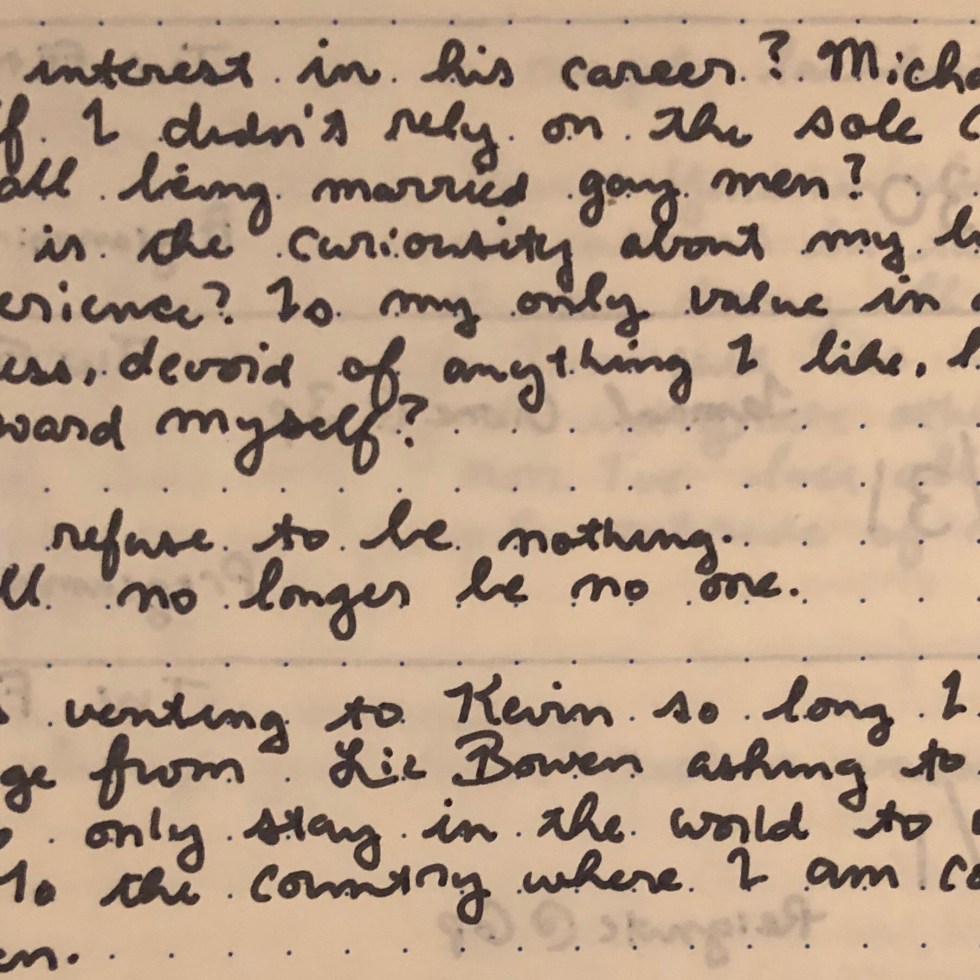 interest in his career? Micha
f I didn't rely on the sole
all being married gay men?
is the curiousity about my
erience? Is my only value in
ess, devoid of anything I like,
ward myself?
refuse to be nothing.
ll no longer be no one.
s venting to Kevin so long I
ge from Liz Bowen asking to
only stay in the world to
To the country where I am co
en.